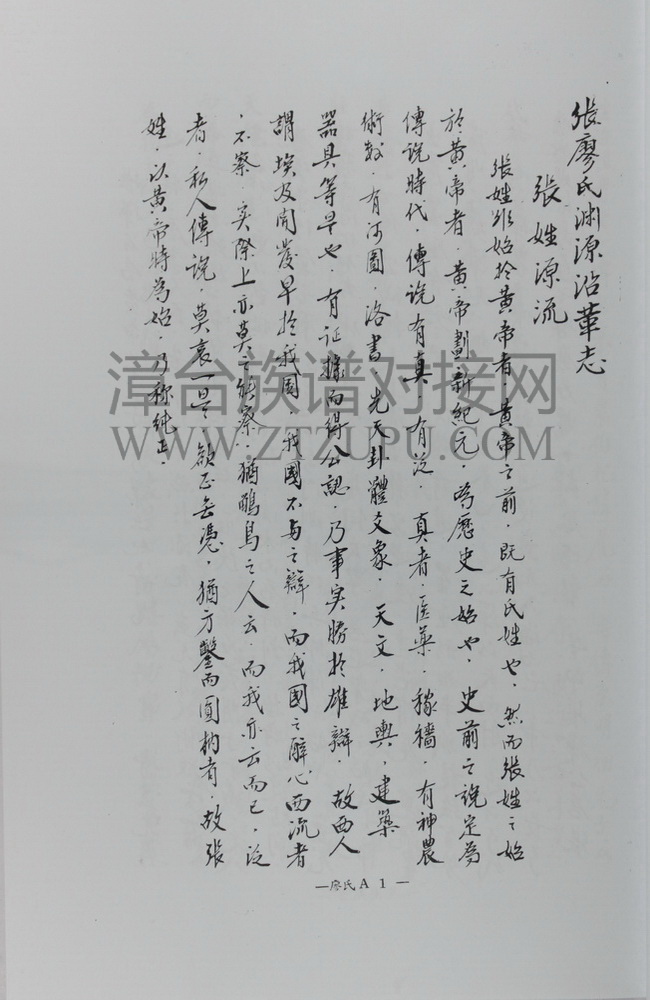 張廖氏淵源沿革志
張姓源流
張姓非始於黃帝者．黃帝之前．既有氏姓也．然而張姓之始
於黃帝者．黃帝劃新紀元．為歷史之始也．史前之說定為
傳說時代．傳說有真．有泛．真者．医藥．稼穡．有神農
術數．有河圖．洛書．先天卦體爻象．天文．地輿．建築
器具等早也．有証據而得公認．乃事实勝於雄辯．故西人
謂埃及開發早於我國．我國不与之辯．而我國之醉心西流者
．不察．実際上亦莫之能察．猶鴯鳥之人云．而我亦云而已．泛
者．私人傳說．莫衷一是．欲正無憑．猶方鑿而圓枘者．故張
姓．以黃帝時為始．乃称純正．
漳台族谱对接网
WWW.ZTZUPU.COM
—廖氏A 1 —